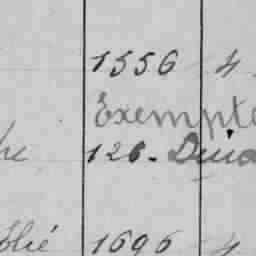 1556 4
Exempte
126. Dui
blié 1696 4